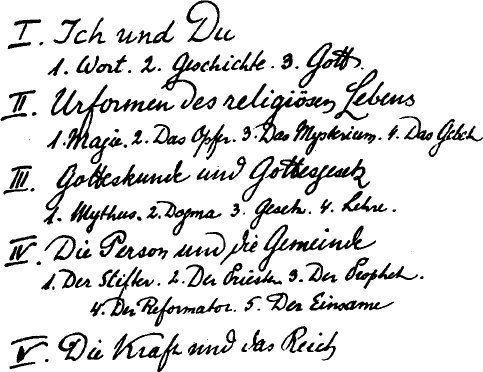 I. Ich und Du
1. Wort. 2. Geschichte. 3. Gott.
II. Urformen des religiösen Lebens
1. Magie. 2. Das Opfer. 3. Das Mysterium. 4. Das Gebet
III. Gotteskunde und Gottesgesetz
1. Mythus. 2. Dogma 3. Gesetz. 4. Lehre.
IV. Die Person und die Gemeinde
1. Der Stifter. 2. Der Priester. 3. Der Prophet.
4. Der Reformator. 5. Der Einsame
V. Die Kraft und das Reich